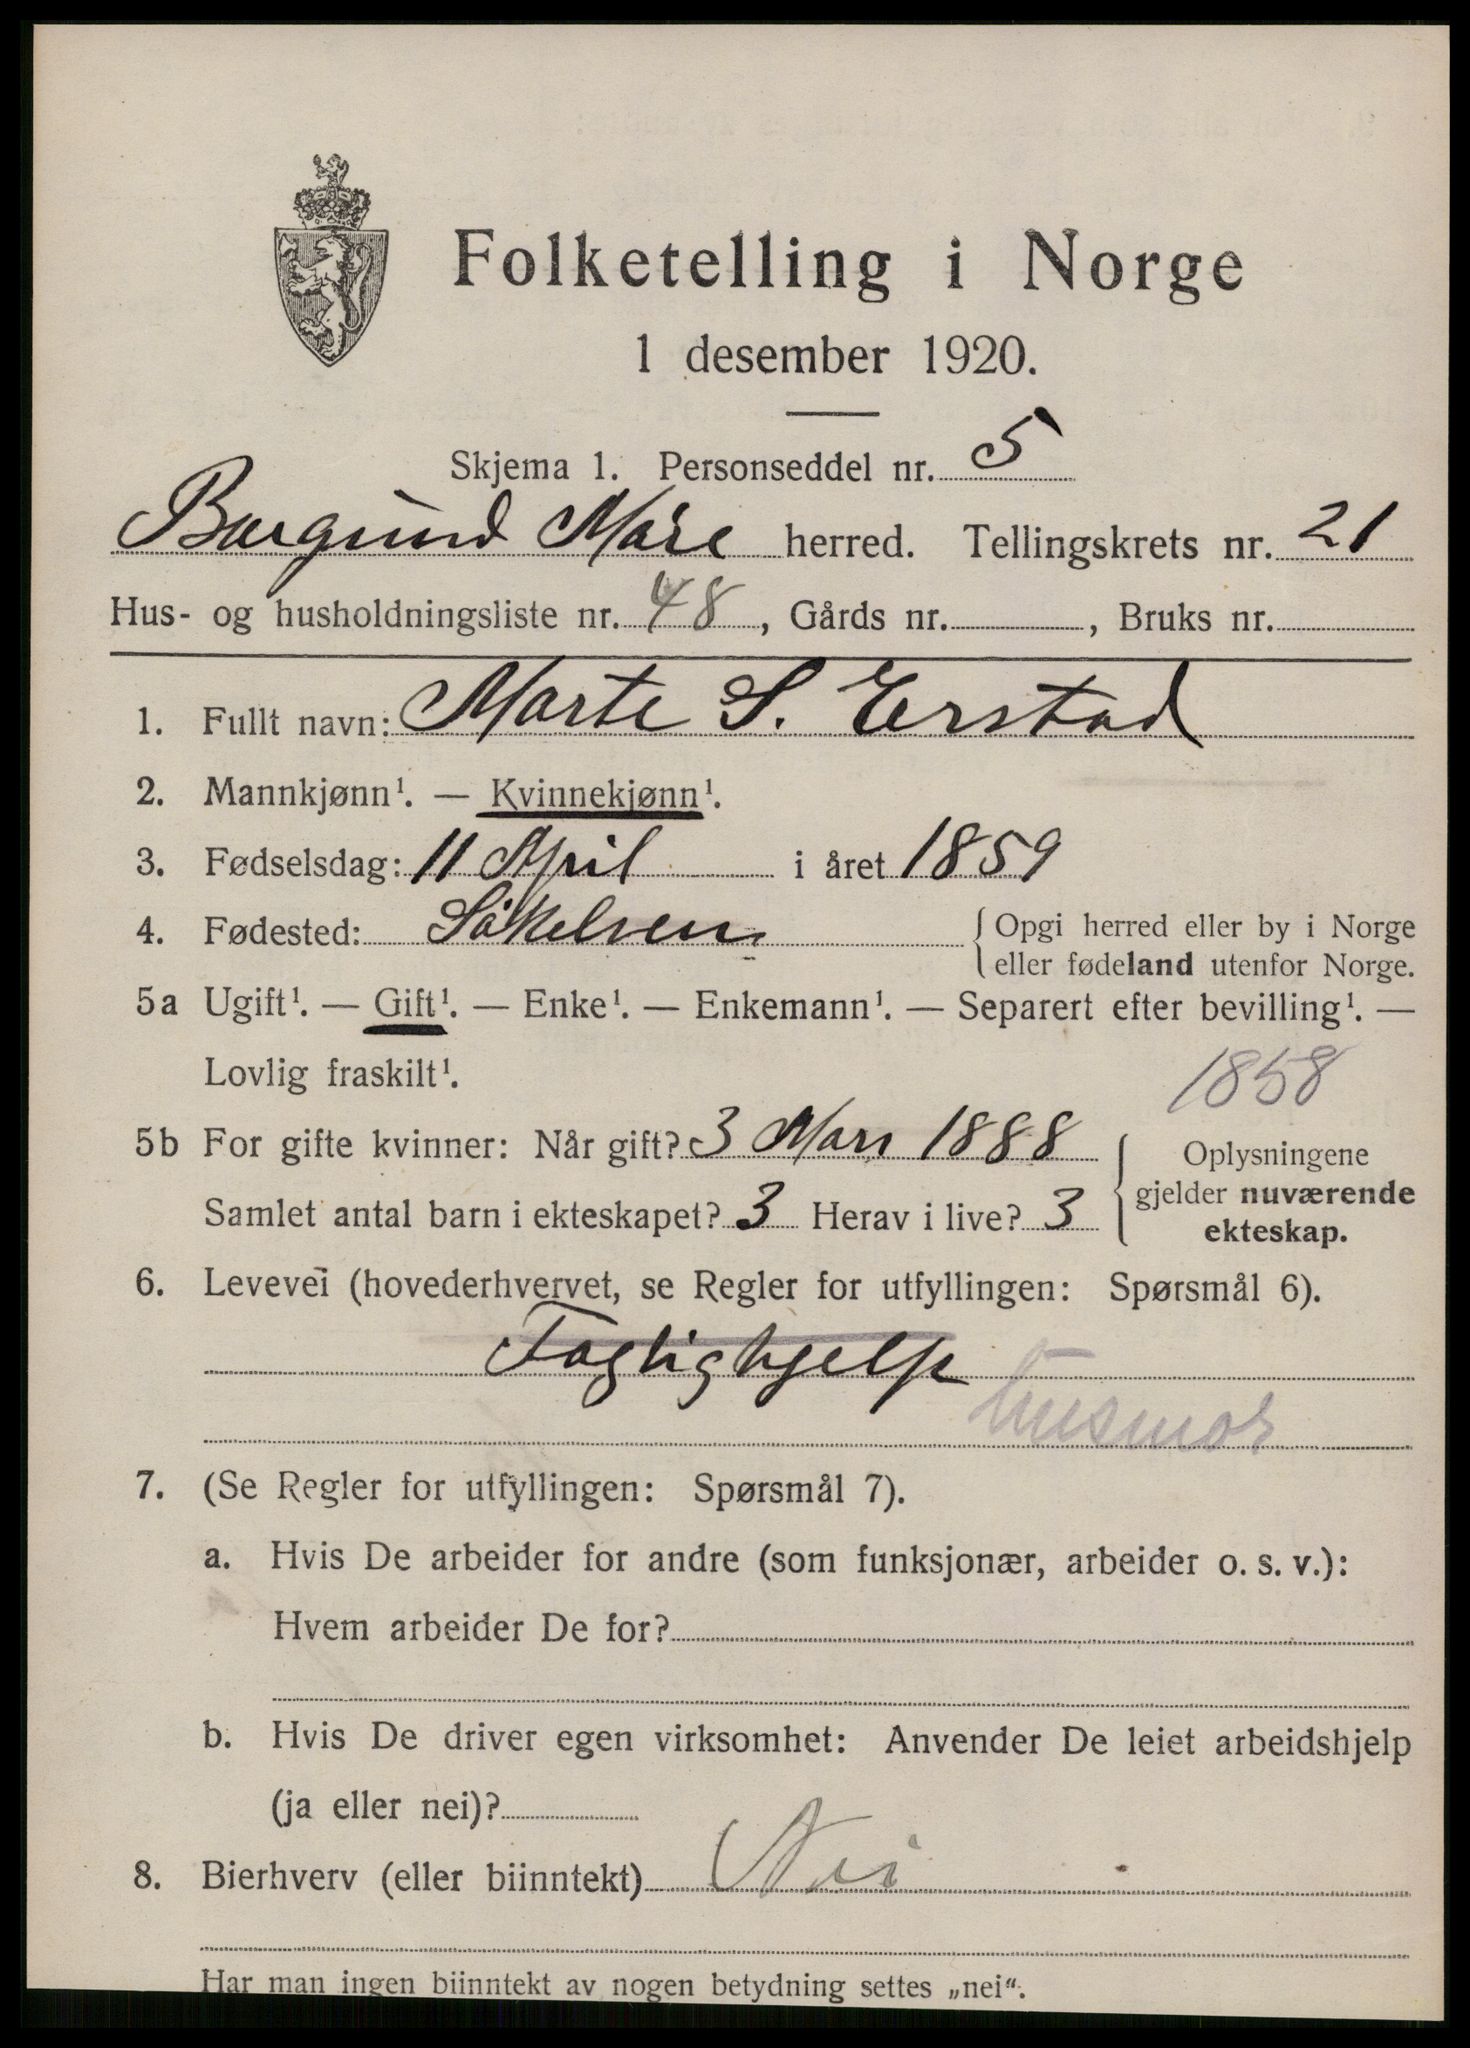 Folketelling i Norge
1 desember 1920.
Skjema 1. Personseddel nr. 5
Borgund Møre herred. Tellingskrets nr. 21
Hus- og husholdningsliste nr. 48, Gårds nr. , Bruks nr.
1. Fullt navn: Marte S. Erstad
2. Mannkjønn¹. — Kvinnekjønn¹.
3. Fødselsdag: 11 April i året 1859
4. Fødested: { Opgi herred eller by i Norge
eller fødeland utenfor Norge.
5a Ugift¹. — Gift¹. — Enke¹. — Enkemann¹. — Separert efter bevilling¹. —
Lovlig fraskilt¹.
1858
5b For gifte kvinner: Når gift? 3 Mars 1888
Samlet antal barn i ekteskapet? 3 Herav i live? 3
{ Oplysningene
gjelder nuværende
ekteskap.
6. Levevei (hovederhvervet, se Regler for utfyllingen: Spørsmål 6).
Faglighjelp
husmor
7. (Se Regler for utfyllingen: Spørsmål 7).
a. Hvis De arbeider for andre (som funksjonær, arbeider o. s. v.):
Hvem arbeider De for?
b. Hvis De driver egen virksomhet: Anvender De leiet arbeidshjelp
(ja eller nei)?
8. Bierhverv (eller biinntekt) Nei
Har man ingen biinntekt av nogen betydning settes „nei“.